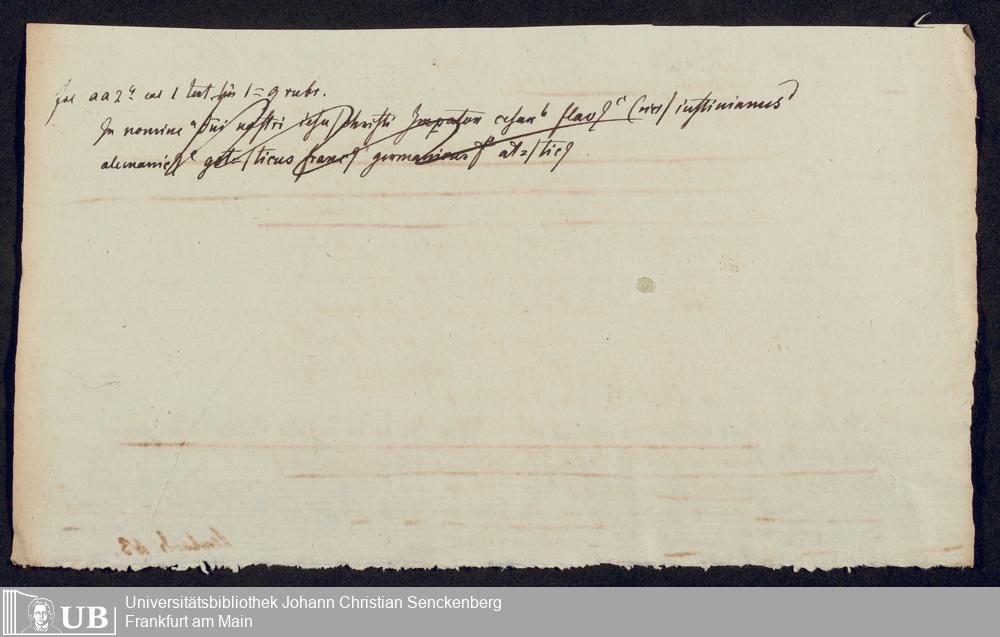 fol aa 2 col 1 text 1 = 9 rubr.
In nomine dni nostri ihesu christi Imperator cesar flavꝯ iustinianus
alemanicꝯ got=|ticus francꝯ germanicus at=|ticꝯ
Universitätsbibliothek Johann Christian Senckenberg
UB Frankfurt am Main